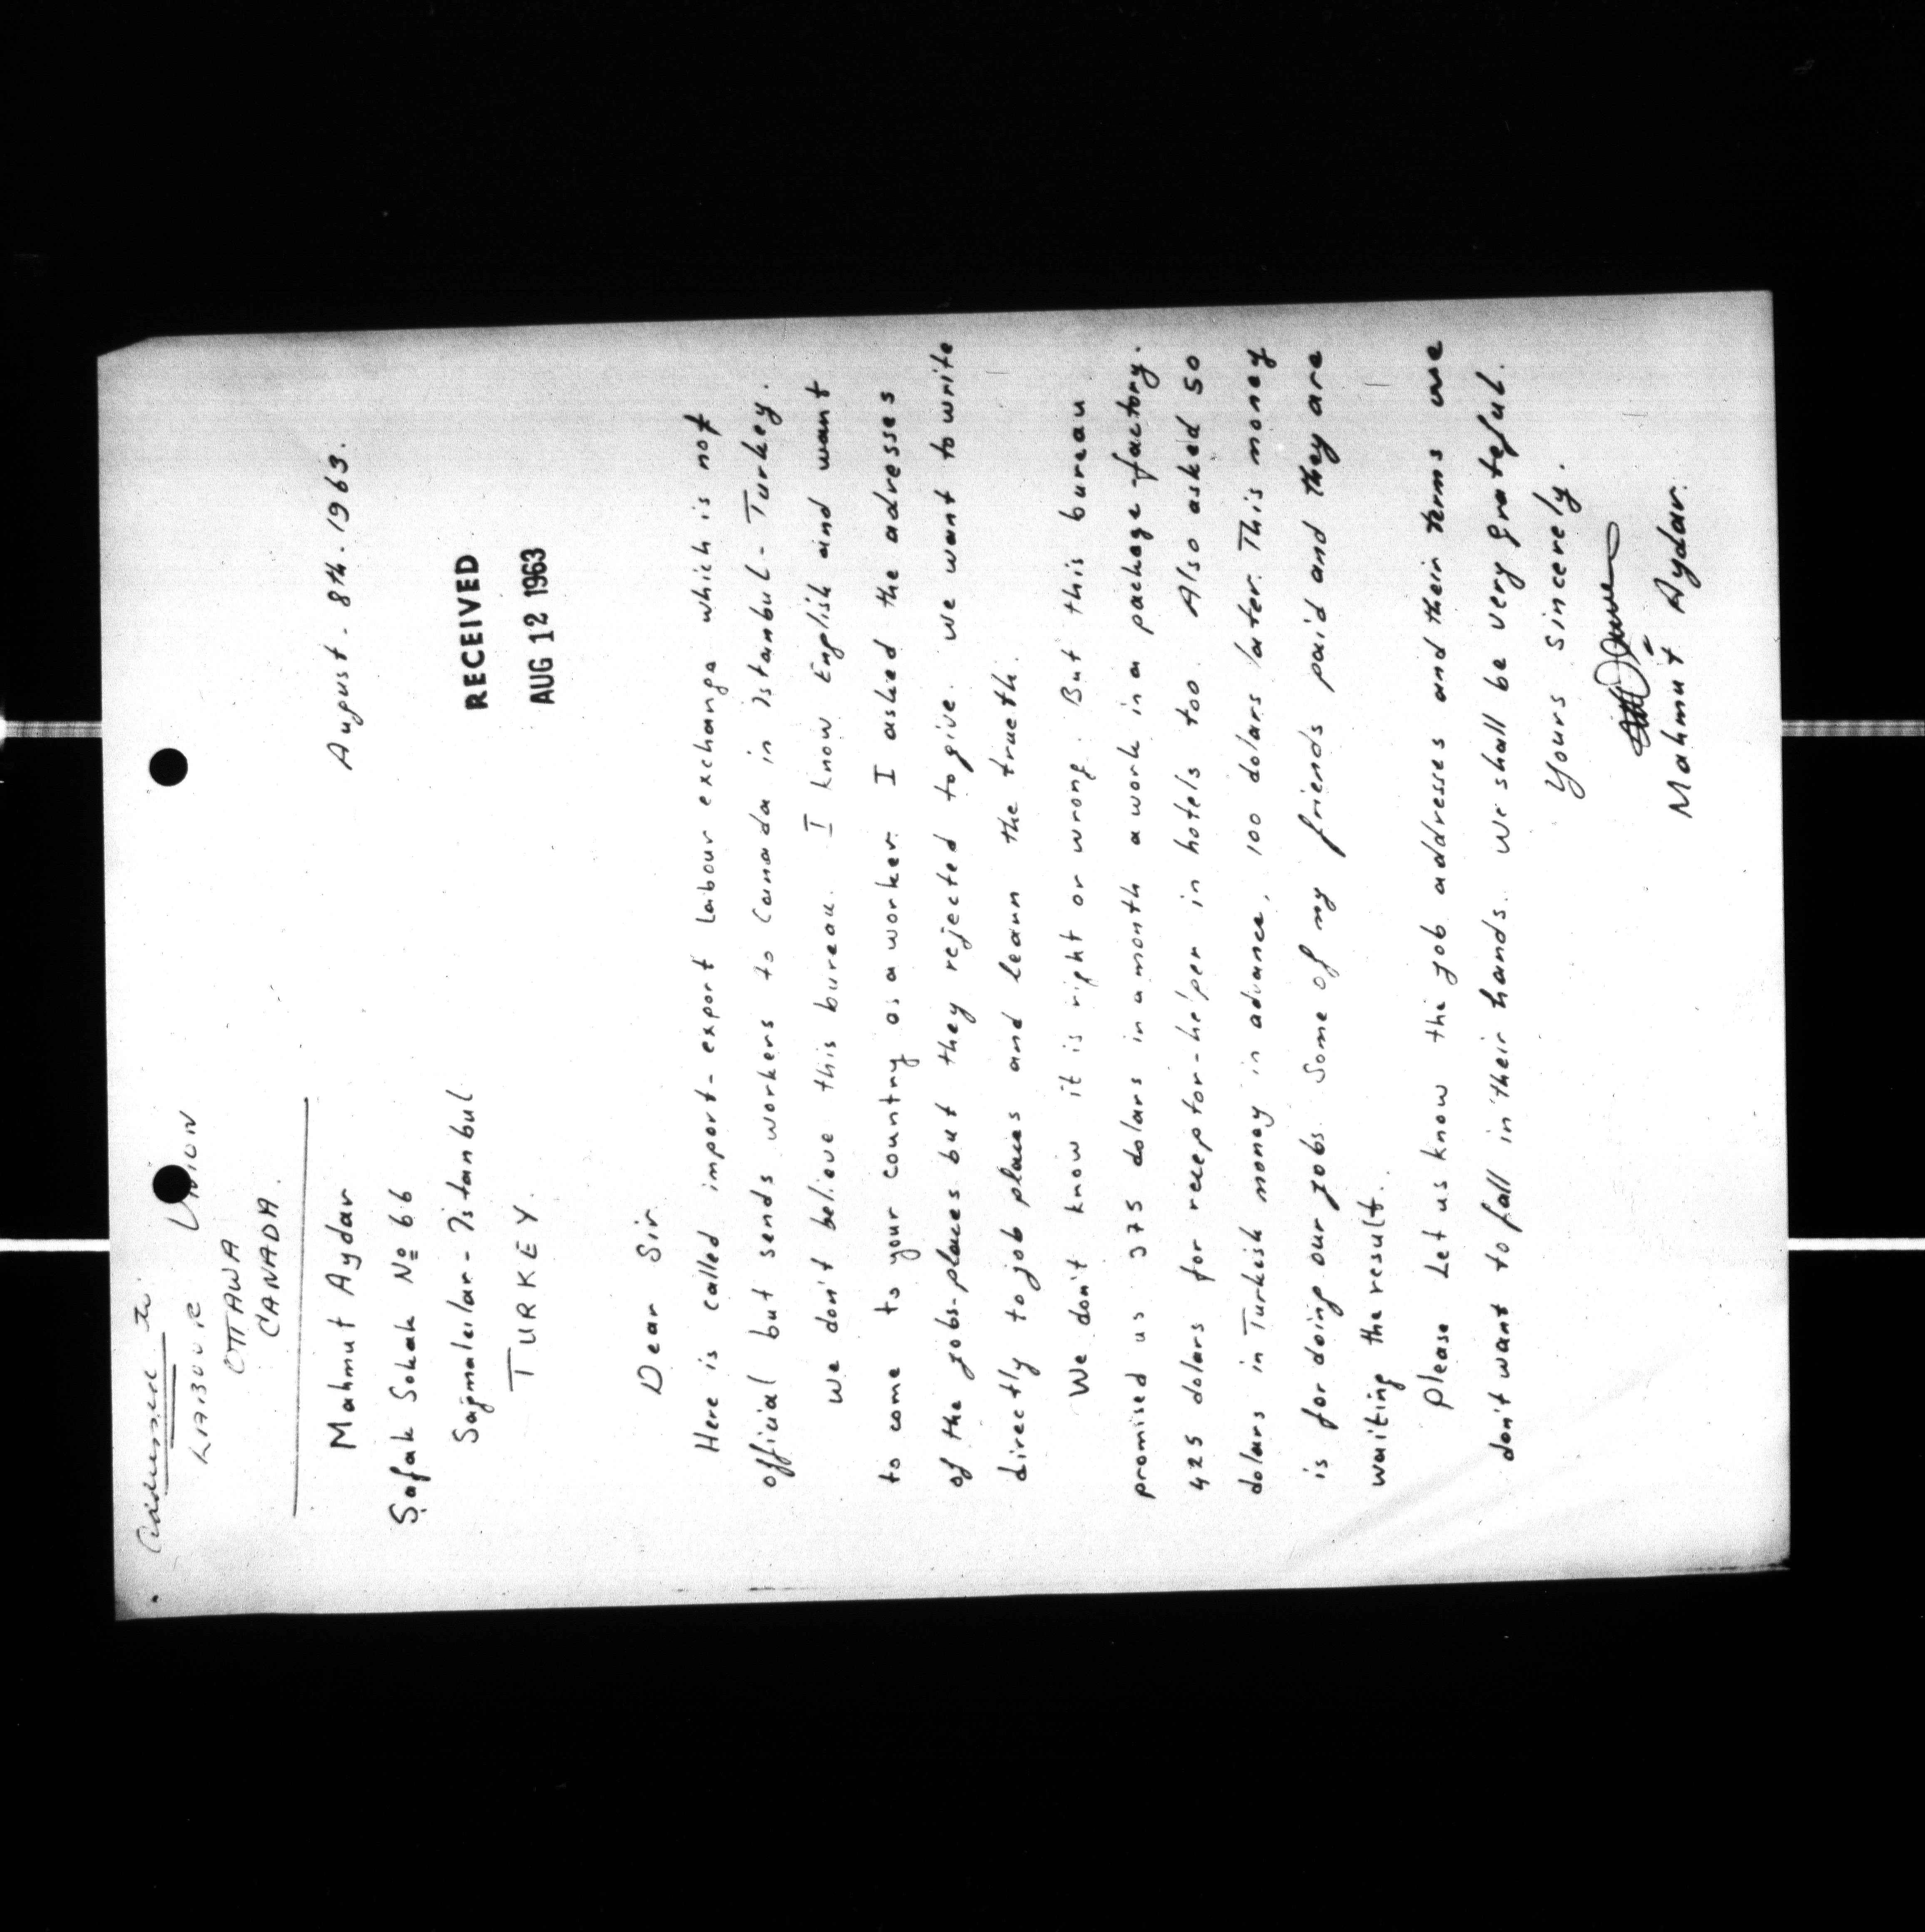 Addressed to:
LABOUR UNION
OTTAWA
CANADA.
Mahmut Aydar
Şafak Sokak No 66
Sağmalcılar - Istanbul
TURKEY.
August - 8th. 1963.
RECEIVED
AUG 12 1963
Dear Sir
Here is called import - export labour exchange which is not
official but sends workers to Canada in Istanbul - Turkey.
We don't believe this bureau. I know English and want
to come to your country as a worker. I asked the adresses
of the jobs-places but they rejected to give. we want to write
directly to job places and learn the trueth.
We don't know it is right or wrong. But this bureau
promised us 375 dolars in a month a work in a package factory.
425 dolars for receptor-helper in hotels too. Also asked 50
dolars in Turkish money in advance, 100 dolars later. This money
is for doing our jobs. Some of my friends paid and they are
waiting the result.
Please Let us know the job addresses and their terms we
don't want to fall in their hands. We shall be very grateful.
Yours sincerely.
Mahmut Aydar.